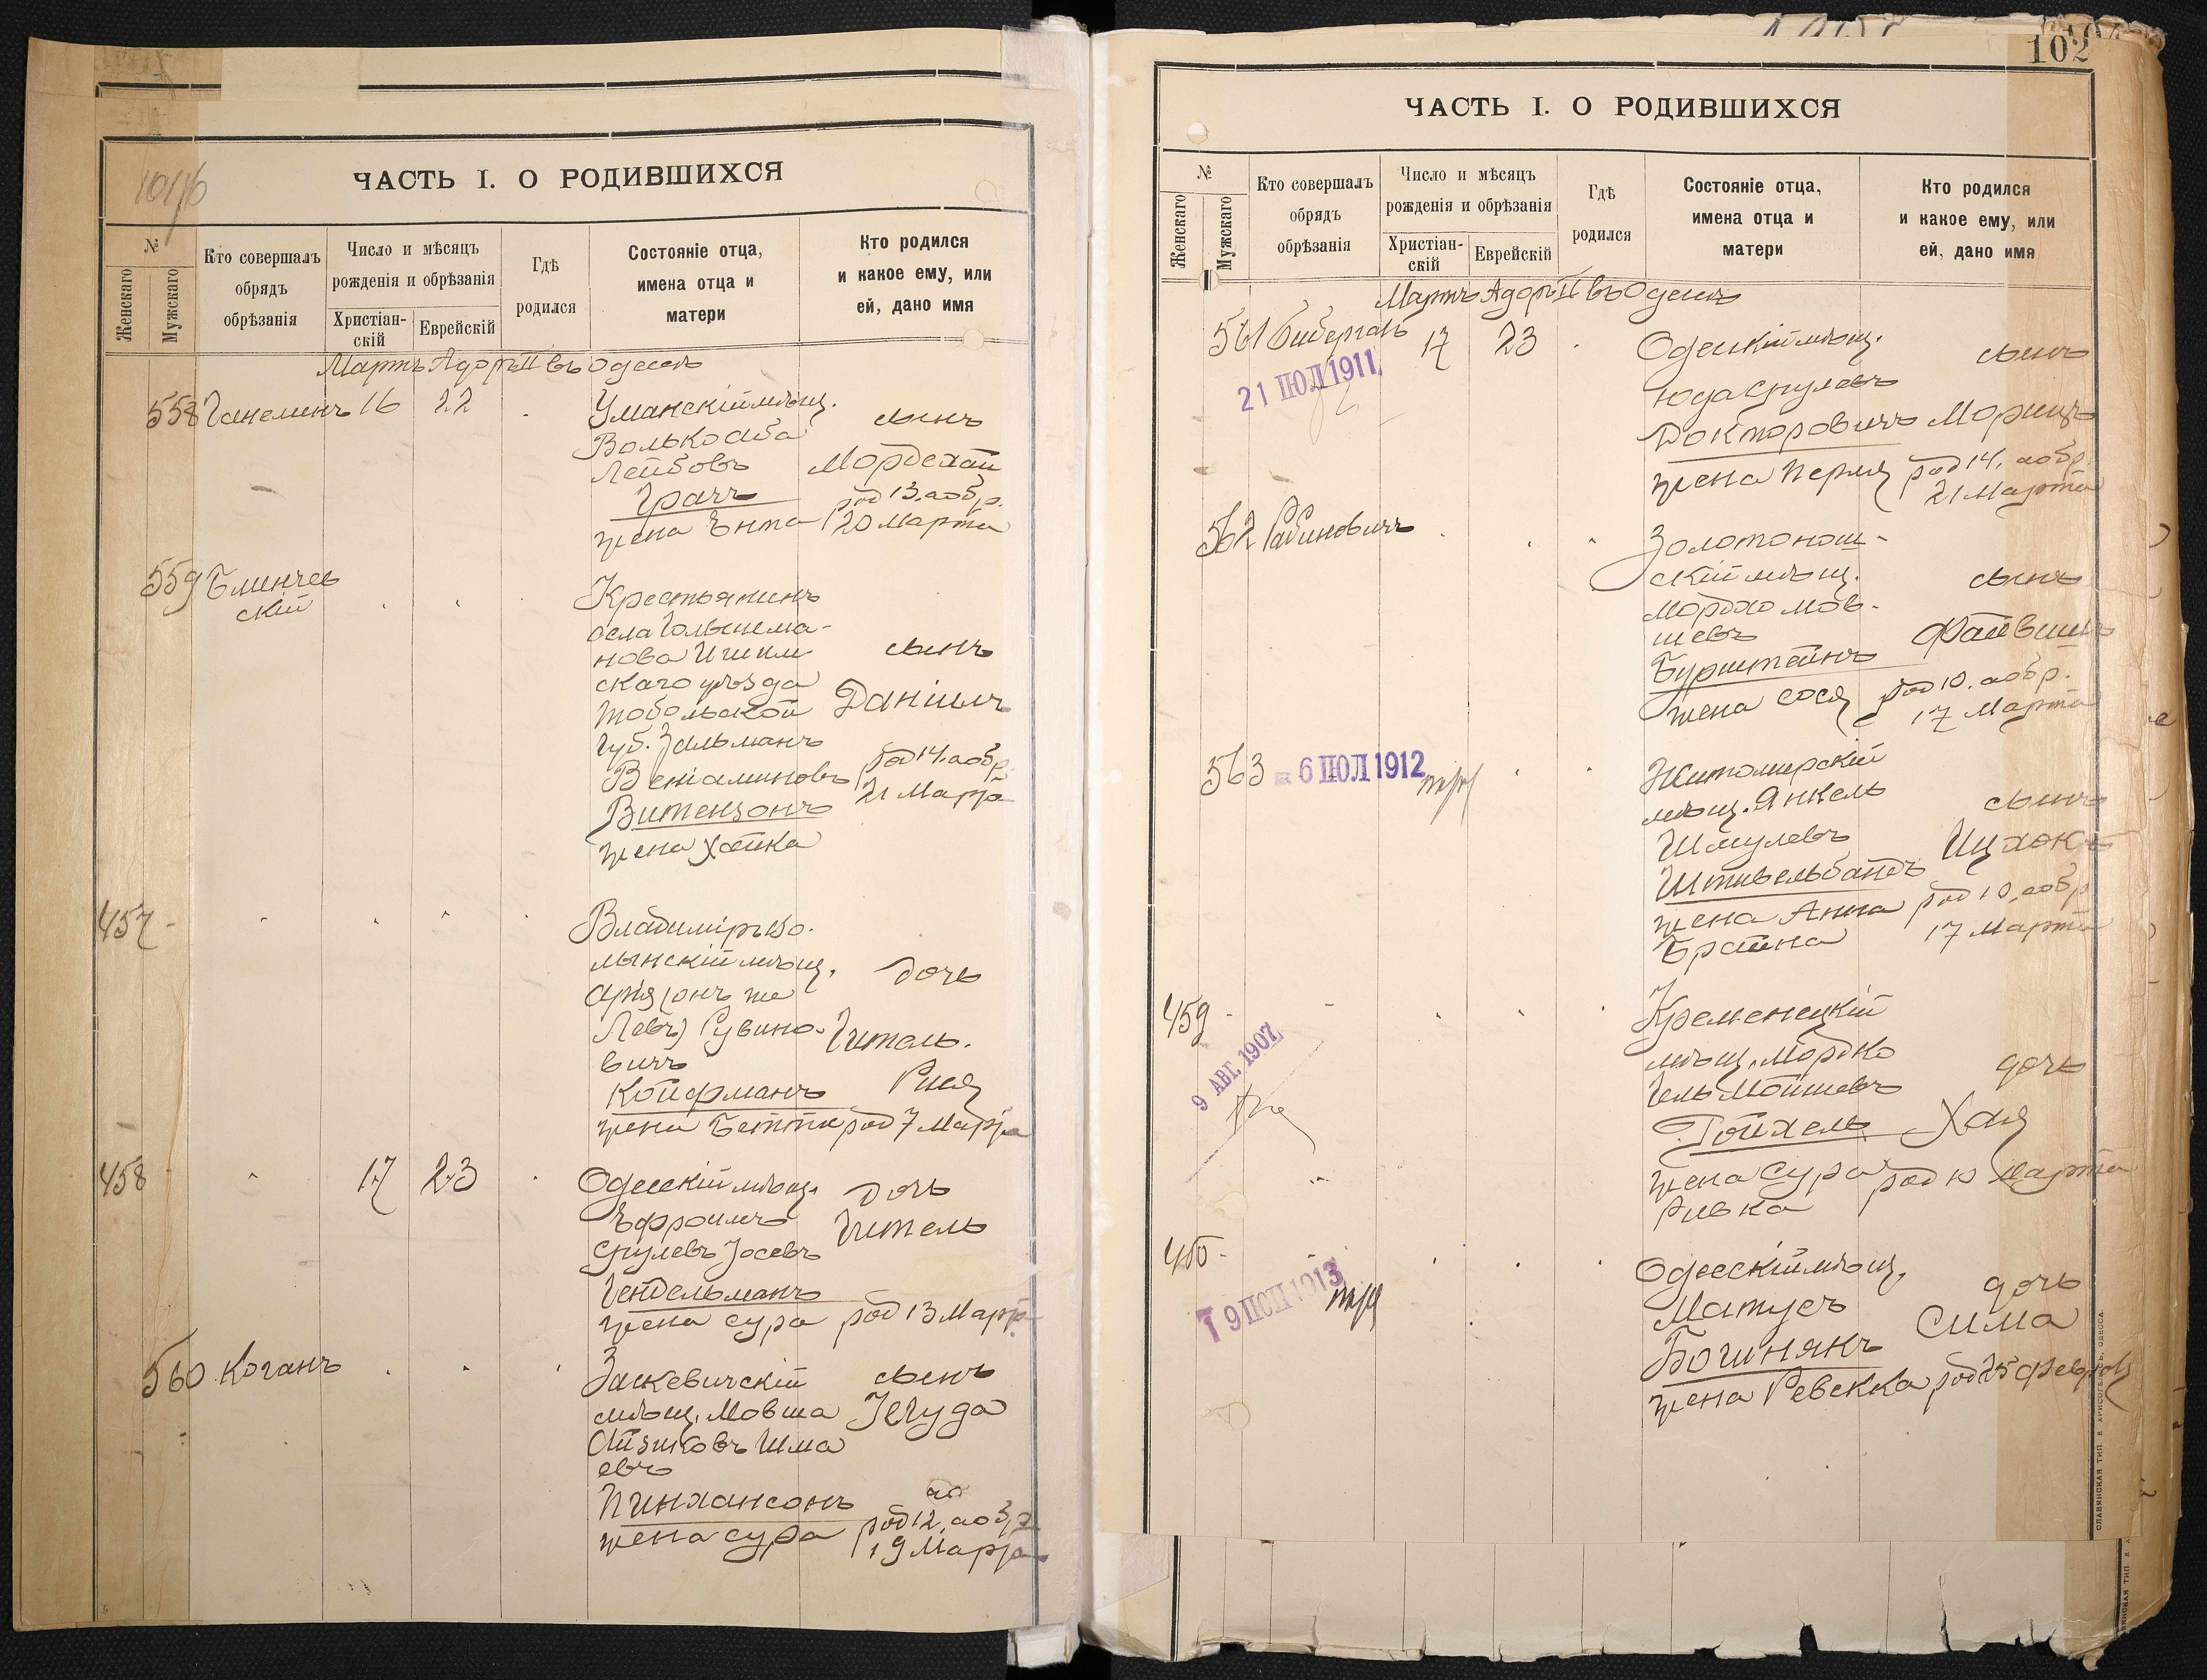 ЧАСТЬ I. О РОДИВШИХСЯ
№
Женскаго
Мужскаго
Кто совершалъ
обрядъ
обрѣзанія
Число и мѣсяцъ
рожденія и обрѣзанія
Христіан-
скій
Еврейскій
Гдѣ
родился
Состояніе отца,
имена отца и
матери
Кто родился
и какое ему, или
ей, дано имя
Мартъ Адоръ II въ Одессѣ
558 16 22
Уманскій мѣщ.
Волько Аба
Лейбовъ
Грачъ
жена Ента
сынъ
Мордехай
род 13, а обр.
20 Марта
559
скій
Крестьянинъ
села
нова Ишим
скаго уѣзда
Тобольской
Губ. Зальманъ
Веніаминовъ
Витензонъ
жена Хайка
сынъ
Даніилъ
род 14, а обр.
21 Марта
457
Владиміръ Во-
лынскій мѣщ.
Арія (онъ же
Левъ) Рувино-
вичъ
Койфманъ
жена Бетти
дочь
Гитель-
Рися
род 7 Марта
458 17 23
Одесскій мѣщ.
Эфроимъ
Срулевъ Іосевъ
Гендельманъ
жена Сура
дочь
Гитель
род 13 Марта
560 Коганъ
Заскевичскій
мѣщ. Мовша
Айзиковъ Шма
евъ
Пинхансонъ
жена Сура
сынъ
Іегуда
род 12, а обр.
19 Марта
102
ЧАСТЬ I. О РОДИВШИХСЯ
№
Женскаго
Мужскаго
Кто совершалъ
обрядъ
обрѣзанія
Число и мѣсяцъ
рожденія и обрѣзанія
Христіан-
скій
Еврейскій
Гдѣ
родился
Состояніе отца,
имена отца и
матери
Кто родился
и какое ему, или
ей, дано имя
Мартъ Адоръ II въ Одессѣ
561 Бибергалъ 17 23
21 ІЮЛ 1911
Одесскій мѣщ.
Юда Срулевъ
Докторовичъ
жена Перля
сынъ
Морицъ
род 14, а обр.
21 Марта
562 Рабиновичъ
Золотонош-
скій мѣщ.
Мордко Мов-
шевъ
Бурштейнъ
жена Сося
сынъ
Файвишъ
род 10, а обр.
17 Марта
563
6 ІЮЛ 1912
Житомирскій
мѣщ. Янкель
Шмулевъ
Штивельбандъ
жена Анна
Брайна
сынъ
Ицхокъ
род 10, а обр.
17 Марта
459
9 АВГ. 1907
Кременецкій
мѣщ. Мордко
Гель Мошковъ
Ройхель
жена Сура
Ривка
дочь
Хая
род 10 Марта
460
1913
Одесскій мѣщ.
Матусъ
Богинянъ
жена Ревекка
дочь
Сима
род 25 Февраля